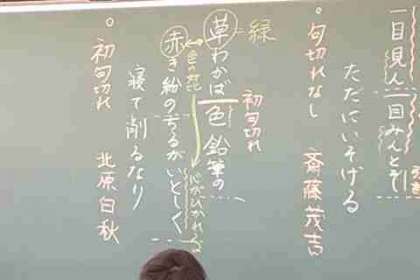 一目見ん一目みんとぞ
ただにいそげる
。句切れなし 斎藤茂吉
緑
初句切れ
草わかば色鉛筆の
心がひかれ
色の対比
赤き粉のちるがいとしく
寝て削るなり
。初句切れ 北原白秋